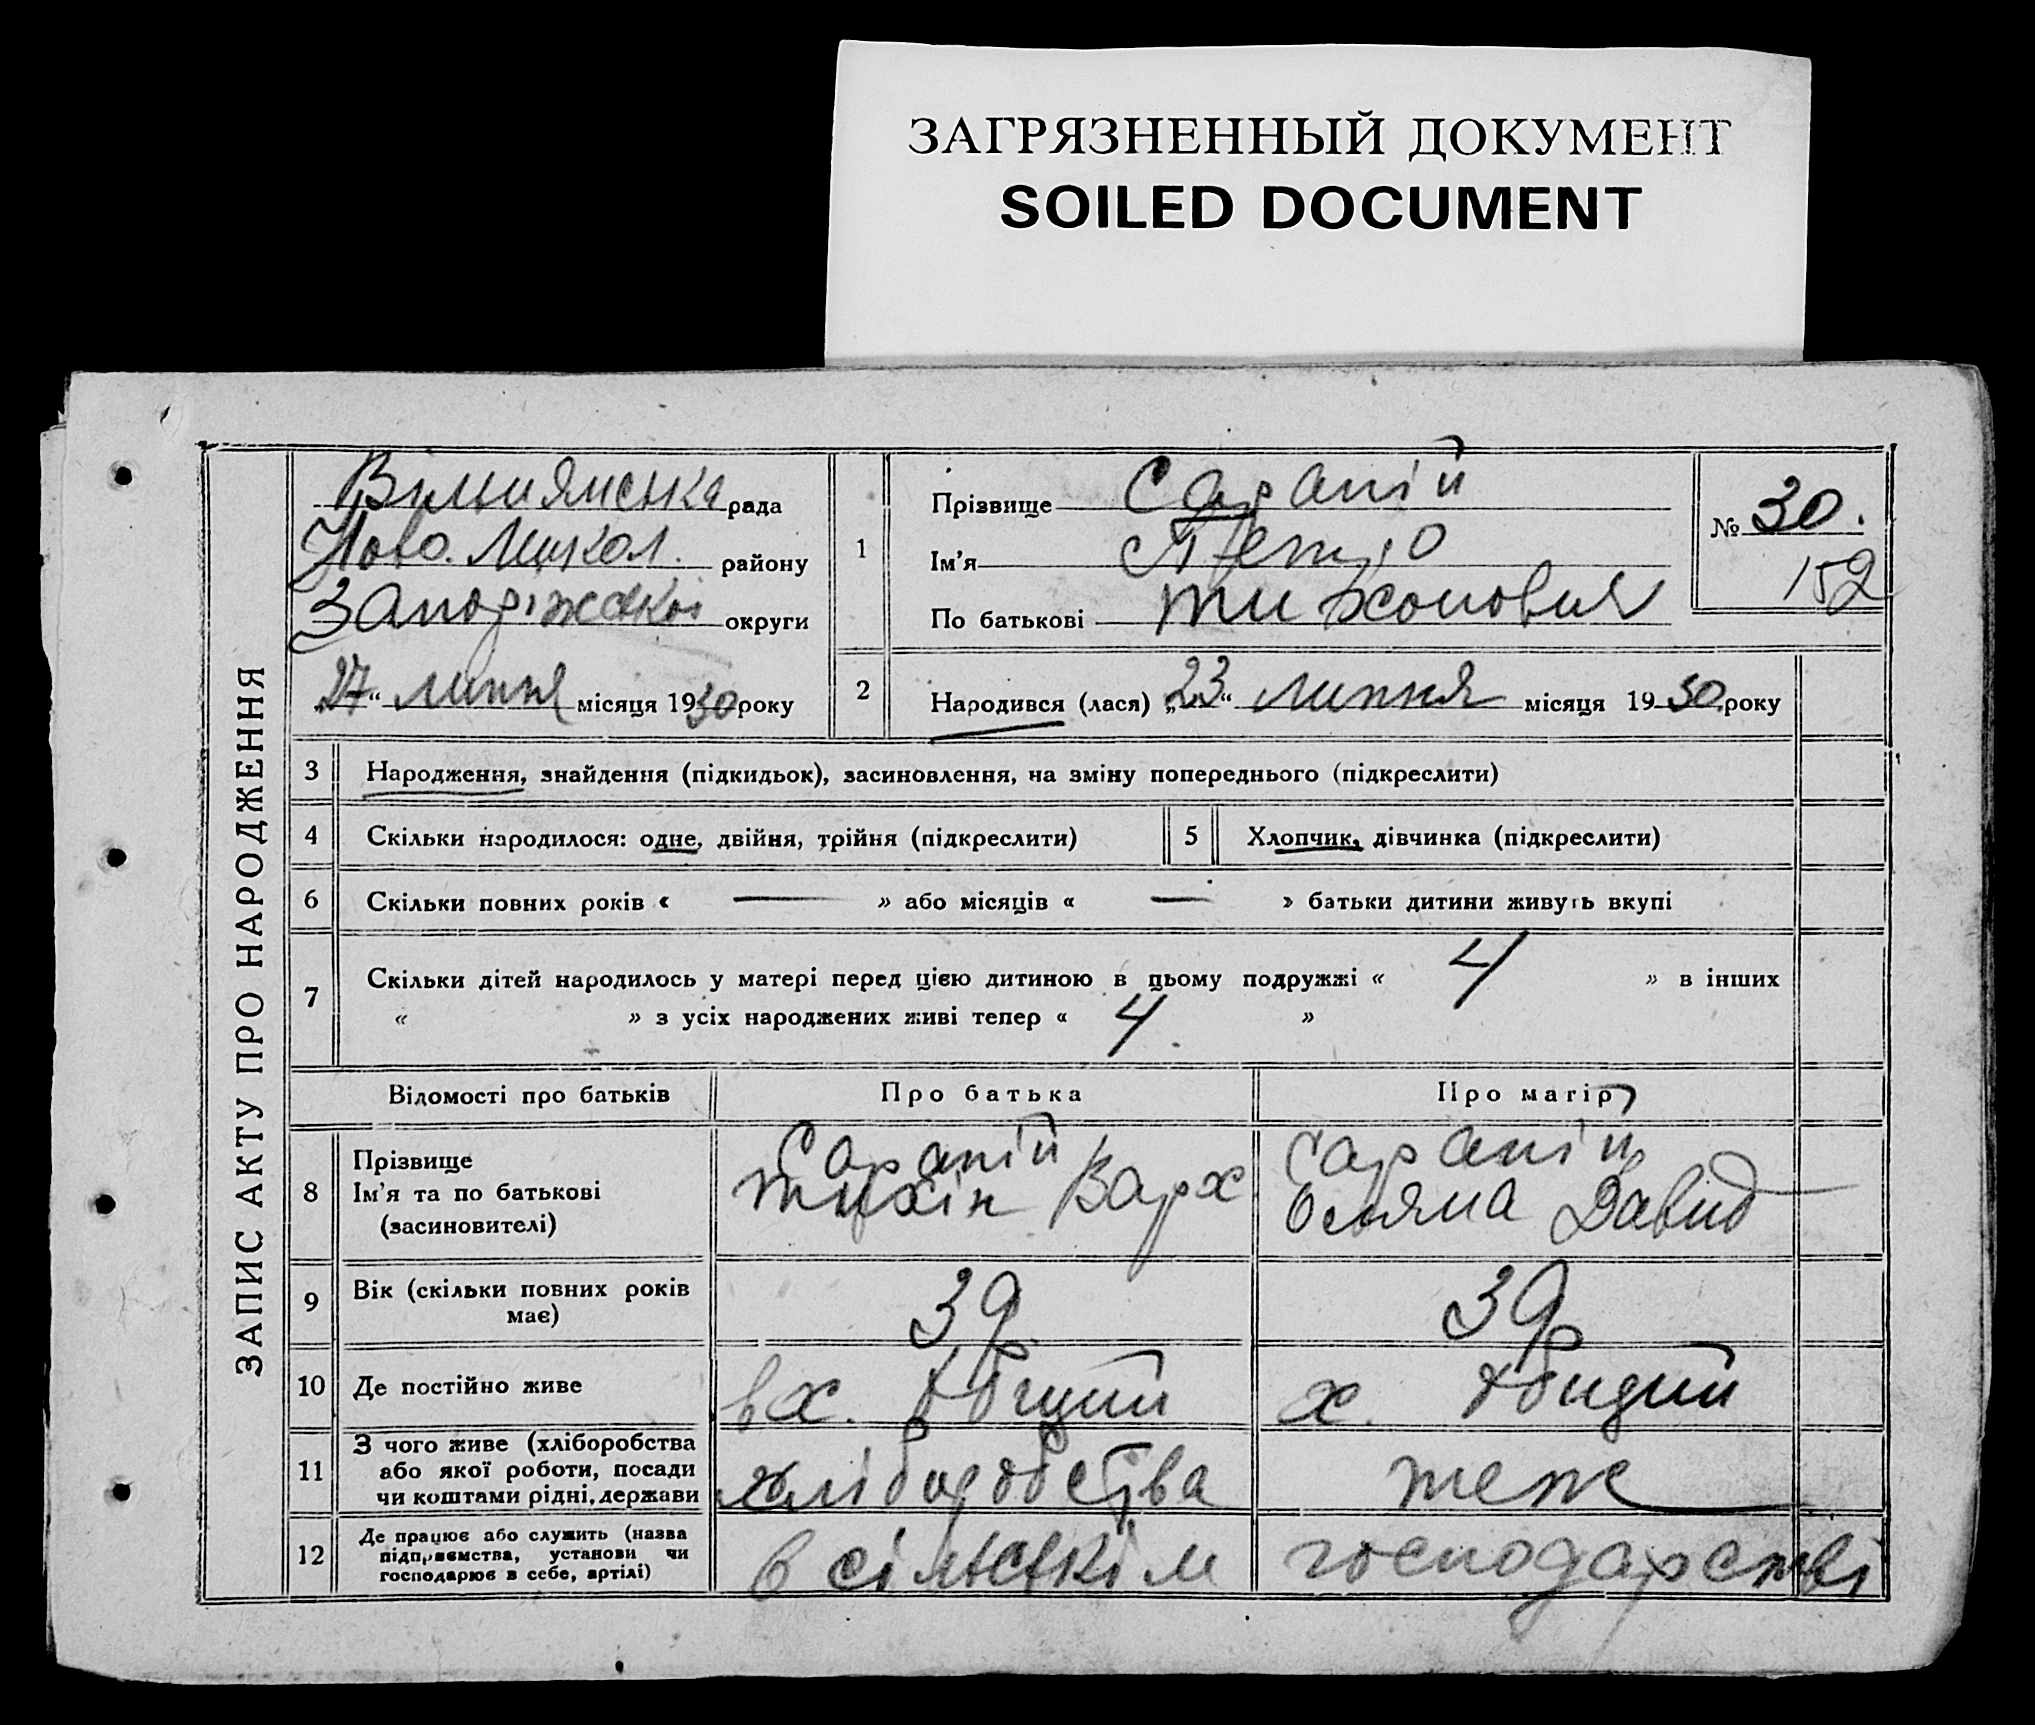 ЗАГРЯЗНЕННЫЙ ДОКУМЕНТ
SOILED DOCUMENT
ЗАПИС АКТУ ПРО НАРОДЖЕННЯ
рада
Ново. Микол. району
Запоріжської округи
„27“ липня місяця 1930 року
1
Прізвище Сарапій
Ім'я Петро
По батькові Тихонович
№ 30.
152
2 Народився (лася) „23“ липня місяця 1930 року
3 Народження, знайдення (підкидьок), засиновлення, на зміну попереднього (підкреслити)
4 Скільки народилося: одне, двійня, трійня (підкреслити) 5 Хлопчик, дівчинка (підкреслити)
6 Скільки повних років « — » або місяців « — » батьки дитини живуть вкупі
7 Скільки дітей народилось у матері перед цією дитиною в цьому подружжі « 4 » в інших
« » з усіх народжених живі тепер « 4. »
Відомості про батьків Про батька Про матір
8 Прізвище Ім'я та по батькові (засиновителі)
Сарапій
Тихін Варх
Сарапій
Давид
9 Вік (скільки повних років має) 39 39
10 Де постійно живе в х. х.
11 З чого живе (хліборобства або якої роботи, посади чи коштами рідні, держави хліборобства теж
12 Де працює або служить (назва підприємства, установи чи господарює в себе, артілі) в сільскім господарстві